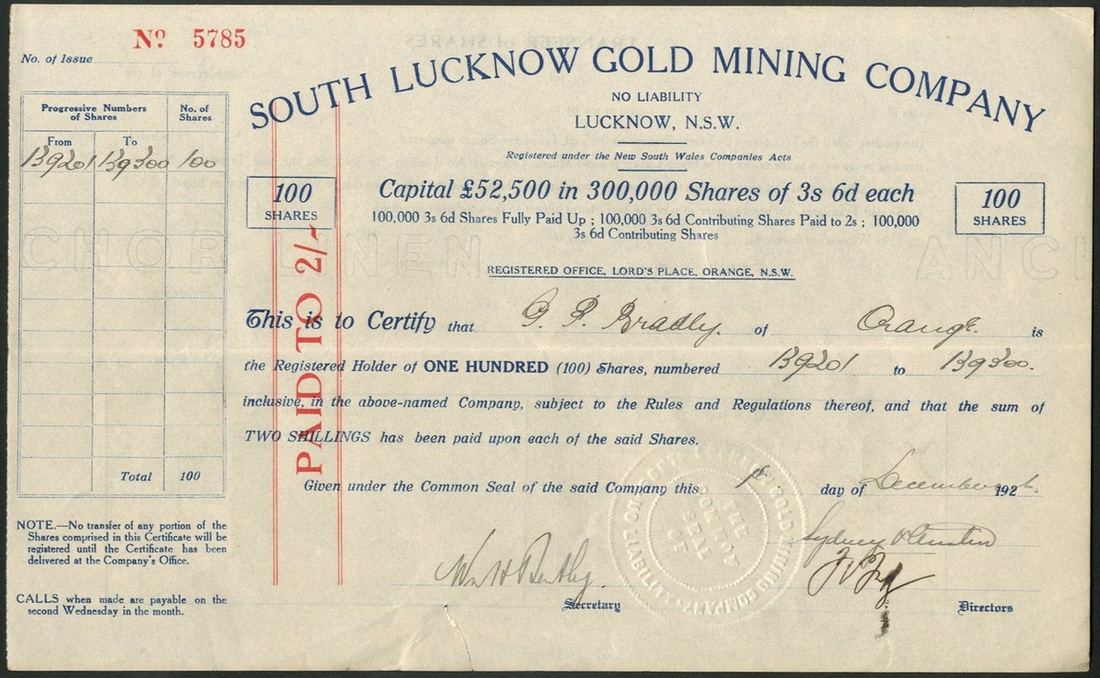 Nº 5785
No. of Issue
Progressive Numbers of Shares
No. of Shares
From To
139201 139300 100
Total 100
NOTE.—No transfer of any portion of the
Shares comprised in this Certificate will be
registered until the Certificate has been
delivered at the Company's Office.
CALLS when made are payable on the
second Wednesday in the month.
SOUTH LUCKNOW GOLD MINING COMPANY
NO LIABILITY
LUCKNOW, N.S.W.
Registered under the New South Wales Companies Acts
100 SHARES
Capital £52,500 in 300,000 Shares of 3s 6d each
100 SHARES
100,000 3s 6d Shares Fully Paid Up ; 100,000 3s 6d Contributing Shares Paid to 2s ; 100,000
3s 6d Contributing Shares
REGISTERED OFFICE, LORD'S PLACE, ORANGE, N.S.W.
PAID TO 2/-
This is to Certify that G. P. Bradly. of Orange. is
the Registered Holder of ONE HUNDRED (100) Shares, numbered 139201 to 139300.
inclusive, in the above-named Company, subject to the Rules and Regulations thereof, and that the sum of
TWO SHILLINGS has been paid upon each of the said Shares.
Given under the Common Seal of the said Company this 1st day of December 192
THE COMMON SEAL OF
Secretary
Directors
ANCHOR LINEN